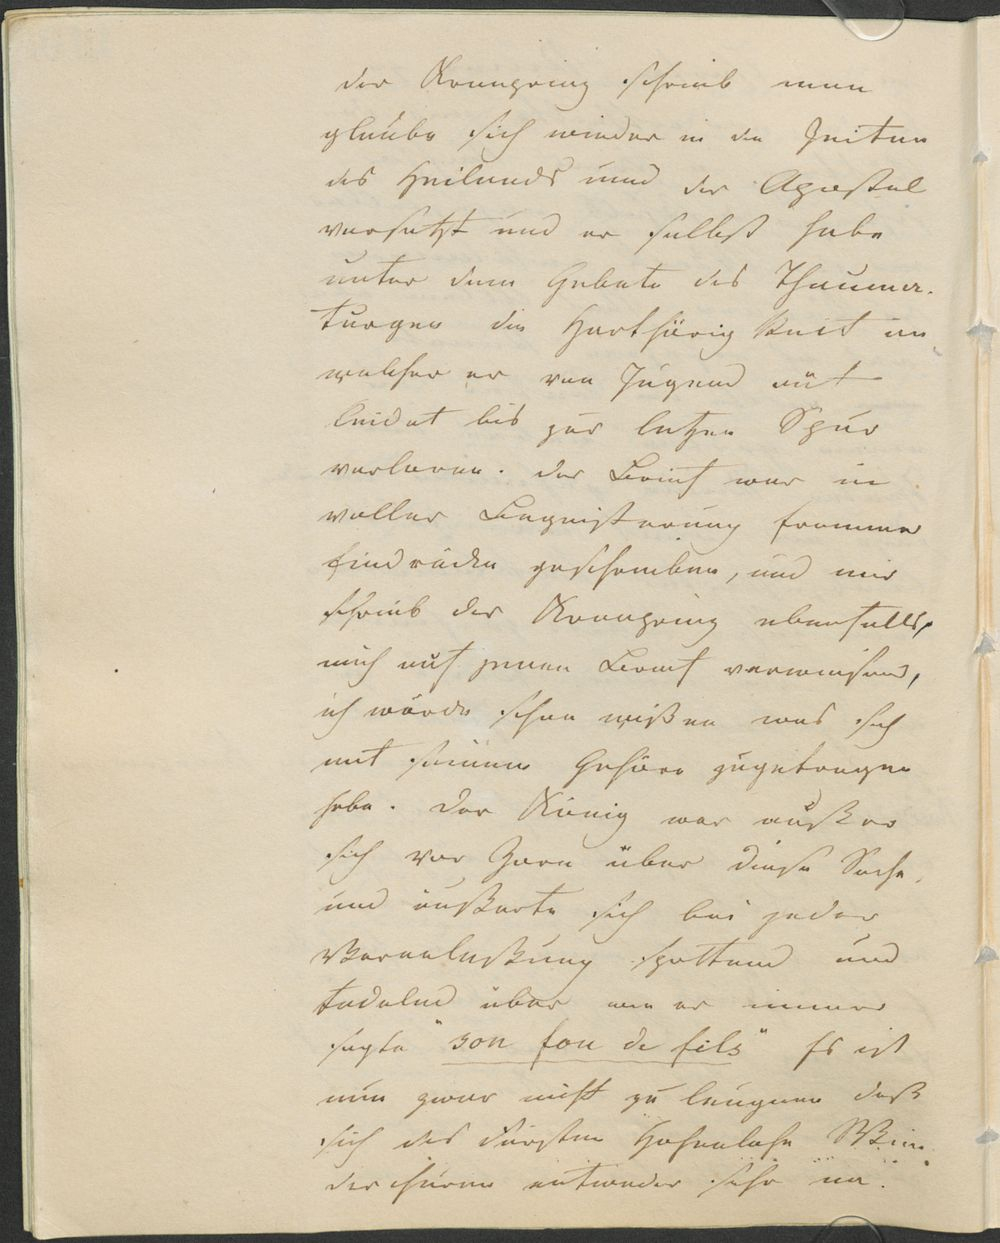 der Kronprinz schrieb man
glaube sich wieder in die Zeiten
des Heilands und der Apostel
versetzt und er selbst habe
unter dem Gebete des Thauma-
turgen die Harthörigkeit an
welcher er von Jugend auf
leidet bis zur letzten Spur
verloren. Der Brief war in
voller Begeisterung frommer
Eindrücke geschrieben, und mir
schrieb der Kronprinz ebenfalls,
mich auf jenen Brief verweisend,
ich würde schon wißen was sich
mit seinem Gehöre zugetragen
habe. Der König war außer
sich vor Zorn über diese Sache,
und äußerte sich bei jeder
Veranlaßung spottend und
tadelnd über wie er immer
sagte "son fou de fils" Es ist
nun zwar nicht zu leugnen daß
sich des Fürsten Hohenlohe Wun-
der curen entweder sehr na-